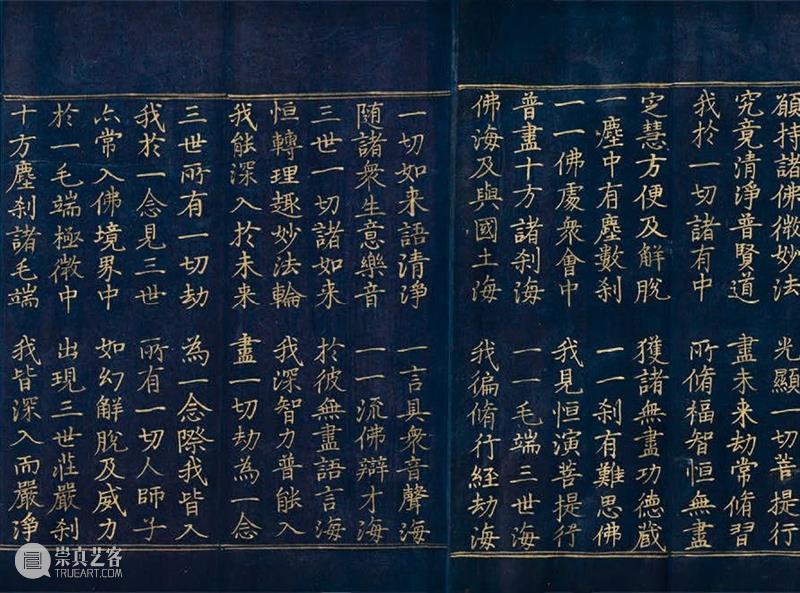 願持諸佛微妙法 光顯一切菩提行
究竟清淨普賢道 盡未来劫常脩習
我於一切諸有中 所脩福智恒無盡
定慧方便及解脫 獲諸無盡功德蔵
一塵中有塵數刹 一一刹有難思佛
一一佛處衆會中 我見恒演菩提行
普盡十方諸刹海 一一毛端三世海
佛海及與國土海 我徧脩行経劫海
一切如来語清淨 一言具衆音聲海
随諸衆生意樂音 一一流佛辯才海
三世一切諸如来 於彼無盡語言海
恒轉理趣妙法輪 我深智力普能入
我能深入於未来 盡一切劫為一念
三世所有一切劫 為一念際我皆入
我於一念見三世 所有一切人師子
亦常入佛境界中 如幻解脫及威力
於一毛端極微中 出現三世莊嚴刹
十方塵刹諸毛端 我皆深入而嚴淨
崇真艺客
TRUEART.COM